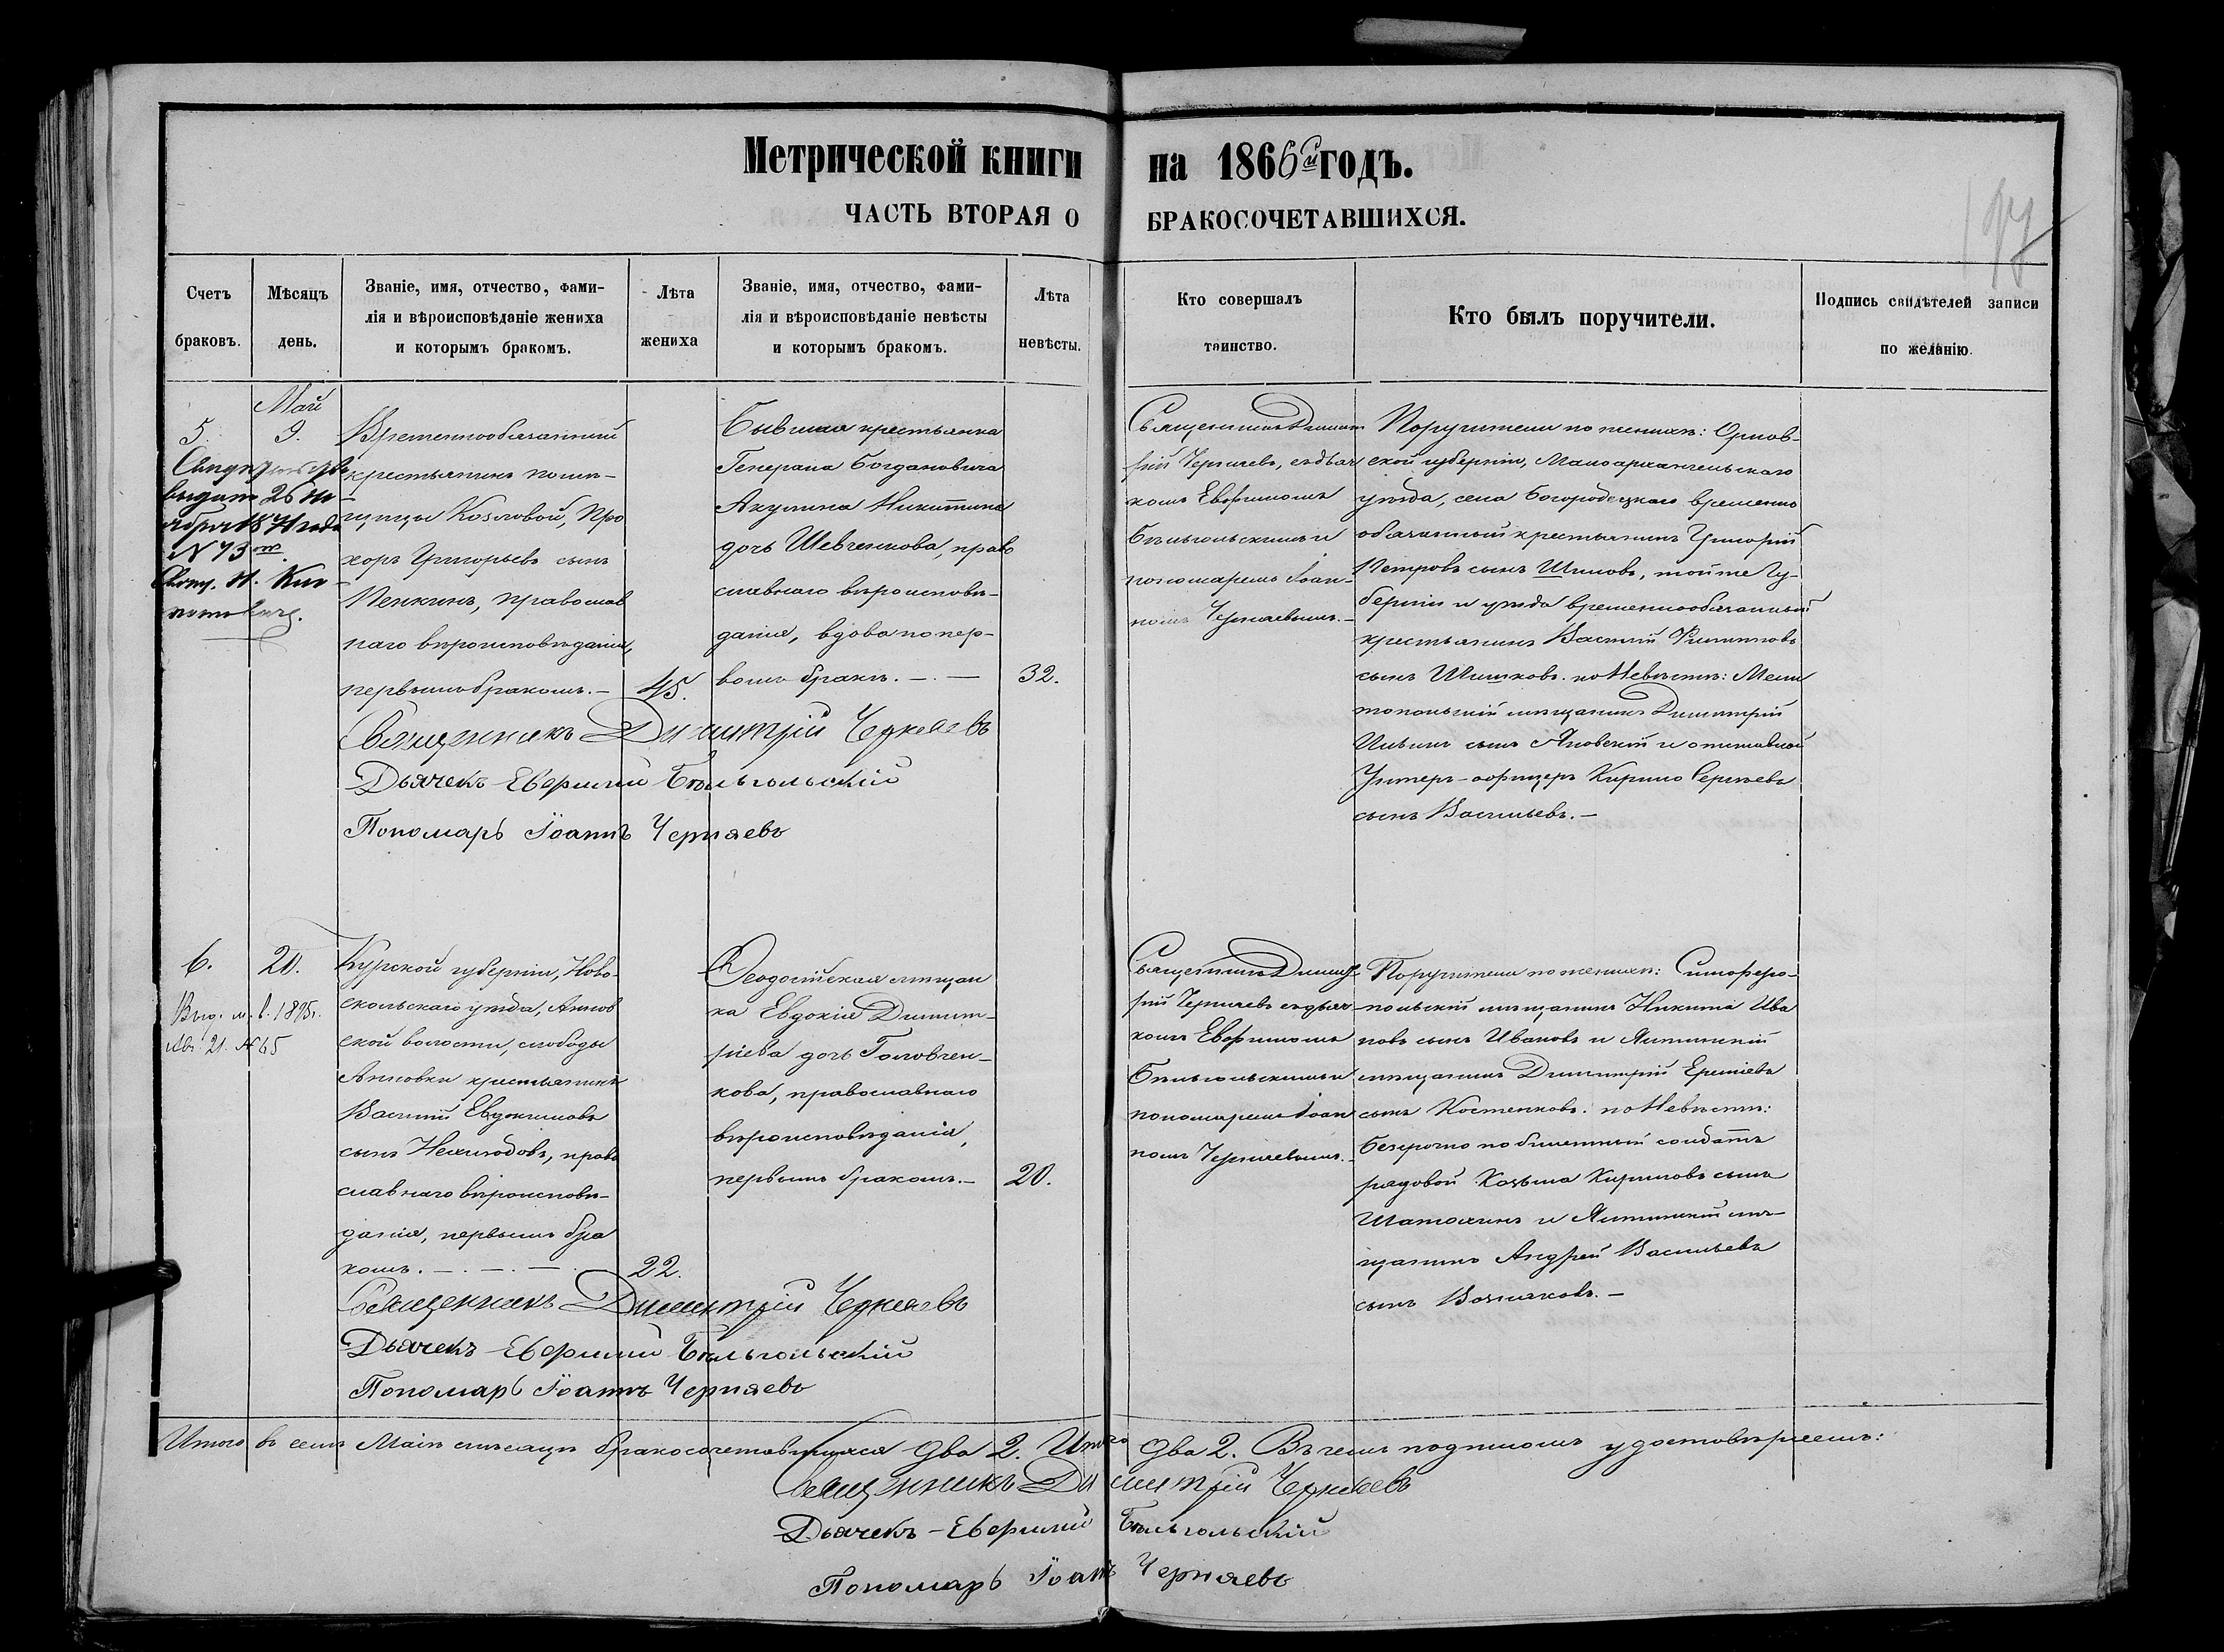 Метрической книги на 1866й годъ.
ЧАСТЬ ВТОРАЯ О БРАКОСОЧЕТАВШИХСЯ.
Счетъ
браковъ.
Мѣсяцъ
день.
Званіе, имя, отчество, фами-
лія и вѣроисповѣданіе жениха
и которымъ бракомъ.
Лѣта
жениха
Званіе, имя, отчество, фами-
лія и вѣроисповѣданіе невѣсты
и которымъ бракомъ.
Лѣта
невѣсты.
Кто совершалъ
таинство.
Кто былъ поручители.
Подпись свидѣтелей записи
по желанію.
5.
выдано 26 но-
ября
N 73
Май
9.
Временнообязанный
крестьянинъ помѣ-
щицы Козловой, Про
хоръ Григорьевъ сынъ
Пенкинъ, православ
наго вѣроисповѣданія,
первымъ бракомъ. —
45.
Бывшая крестьянка
Генерала Богдановича
Акулина Никитина
дочь Шевченкова, право
славнаго вѣроисповѣ-
данія, вдова по пер-
вомъ бракѣ. — . —
32.
Священникъ Димит
рій Черняевъ, съ дьяч
комъ Евфиміемъ
Бѣльгольскимъ и
пономаремъ Іоан-
номъ Черняевымъ. —
Поручители по женихѣ: Орлов-
ской губерніи, Малоархангельскаго
уѣзда, села Богородецкаго временно
обязанный крестьянинъ Григорій
Петровъ сынъ Шиловъ, той же Гу-
берніи и уѣзда временнообязанный
крестьянинъ Василій Филиповъ
сынъ Шишковъ. по Невѣстѣ: Мели
топольскій мѣщанинъ Димитрій
Ильинъ сынъ Яновскій и отставной
Унтеръ-офицеръ Кирило Сергѣевъ
сынъ Васильевъ. —
Священникъ Димитрій Черняевъ
Дьячекъ Евфимій Бѣльгольскій
Пономарь Іоаннъ Черняевъ
6.
Выд. м. в. 1895г.
Авг. 21. № 65
20.
Курской губерніи, Ново-
скольскаго уѣзда, Аннов
ской волости, слободы
Анновки крестьянинъ
Василій Евдокимовъ
сынъ Нехлюдовъ, право
славнаго вѣроисповѣ-
данія, первымъ бра
комъ. — . — . —
22.
Ѳеодосійская мѣщан
ка Евдокія Димит-
ріева дочь Головчен-
кова, православнаго
вѣроисповѣданія,
первымъ бракомъ. —
20.
Священникъ Димит
рій Черняевъ съ дьяч
комъ Евфиміемъ
Бѣльгольскимъ и
пономаремъ Іоан
номъ Черняевымъ. —
Поручители по женихѣ: Симферо-
польскій мѣщанинъ Никита Ива
новъ сынъ Ивановъ и Ялтинскій
мѣщанинъ Димитрій Еремѣевъ
сынъ Костенковъ. по Невѣстѣ:
безсрочно по билетный солдатъ
рядовой Козьма Кириловъ сынъ
Шатохинъ и Ялтинскій мѣ-
щанинъ Андрей Васильевъ
сынъ Возняковъ. —
Священникъ Димитрій Черняевъ
Дьячекъ Евфимій Бѣльгольскій
Пономарь Іоаннъ Черняевъ
Итого въ семъ Маіѣ мѣсяцѣ бракосочетавшихся два 2. Итого два 2. Въ чемъ подписомъ удостовѣряемъ:
Священникъ Димитрій Черняевъ
Дьячекъ Евфимій Бѣльгольскій
Пономарь Іоаннъ Черняевъ